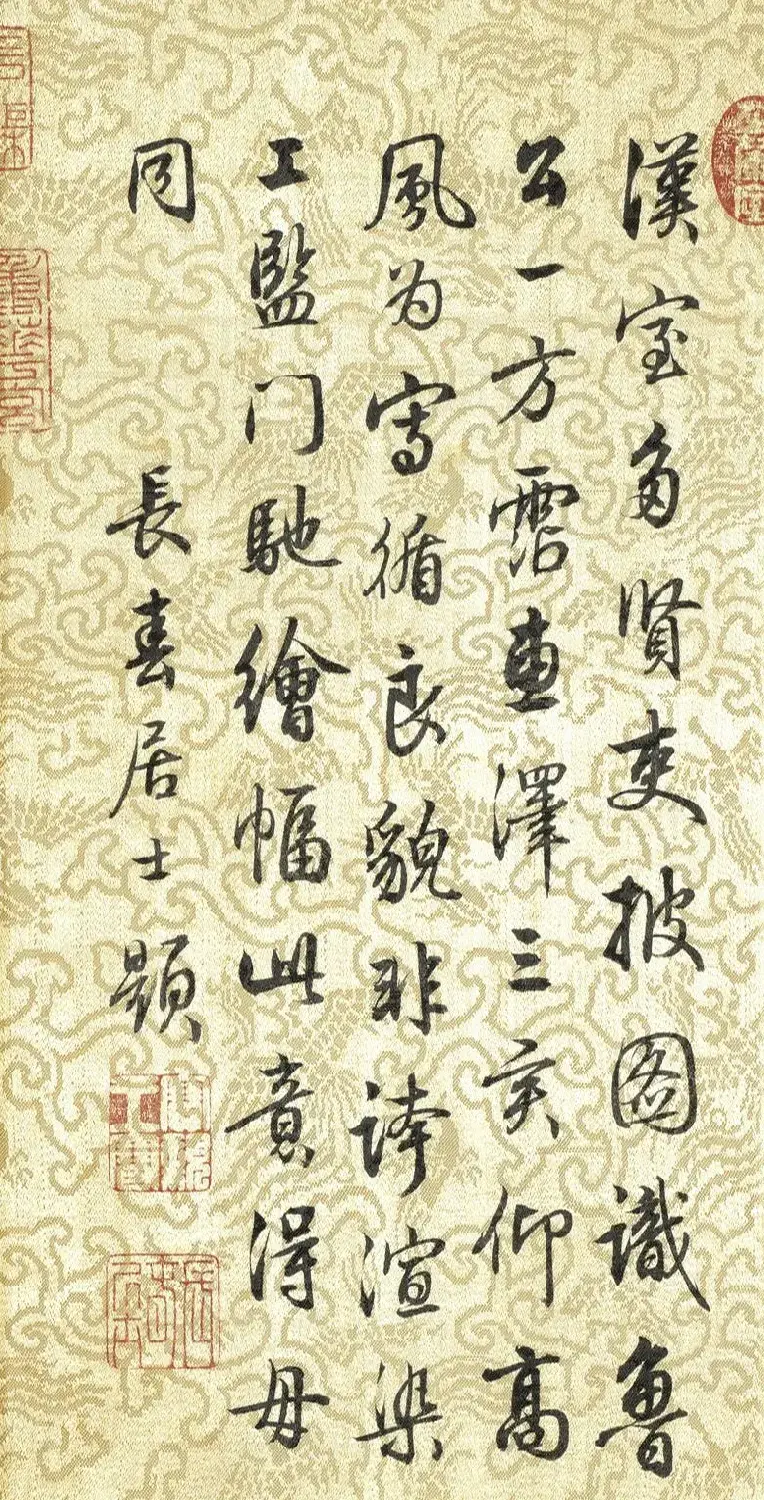 漢室多賢吏披圖識魯
公一方霑惠澤三異仰高
風為寫循良貌非誇渲染
工監門馳繪幅此意得毋
同
長春居士題